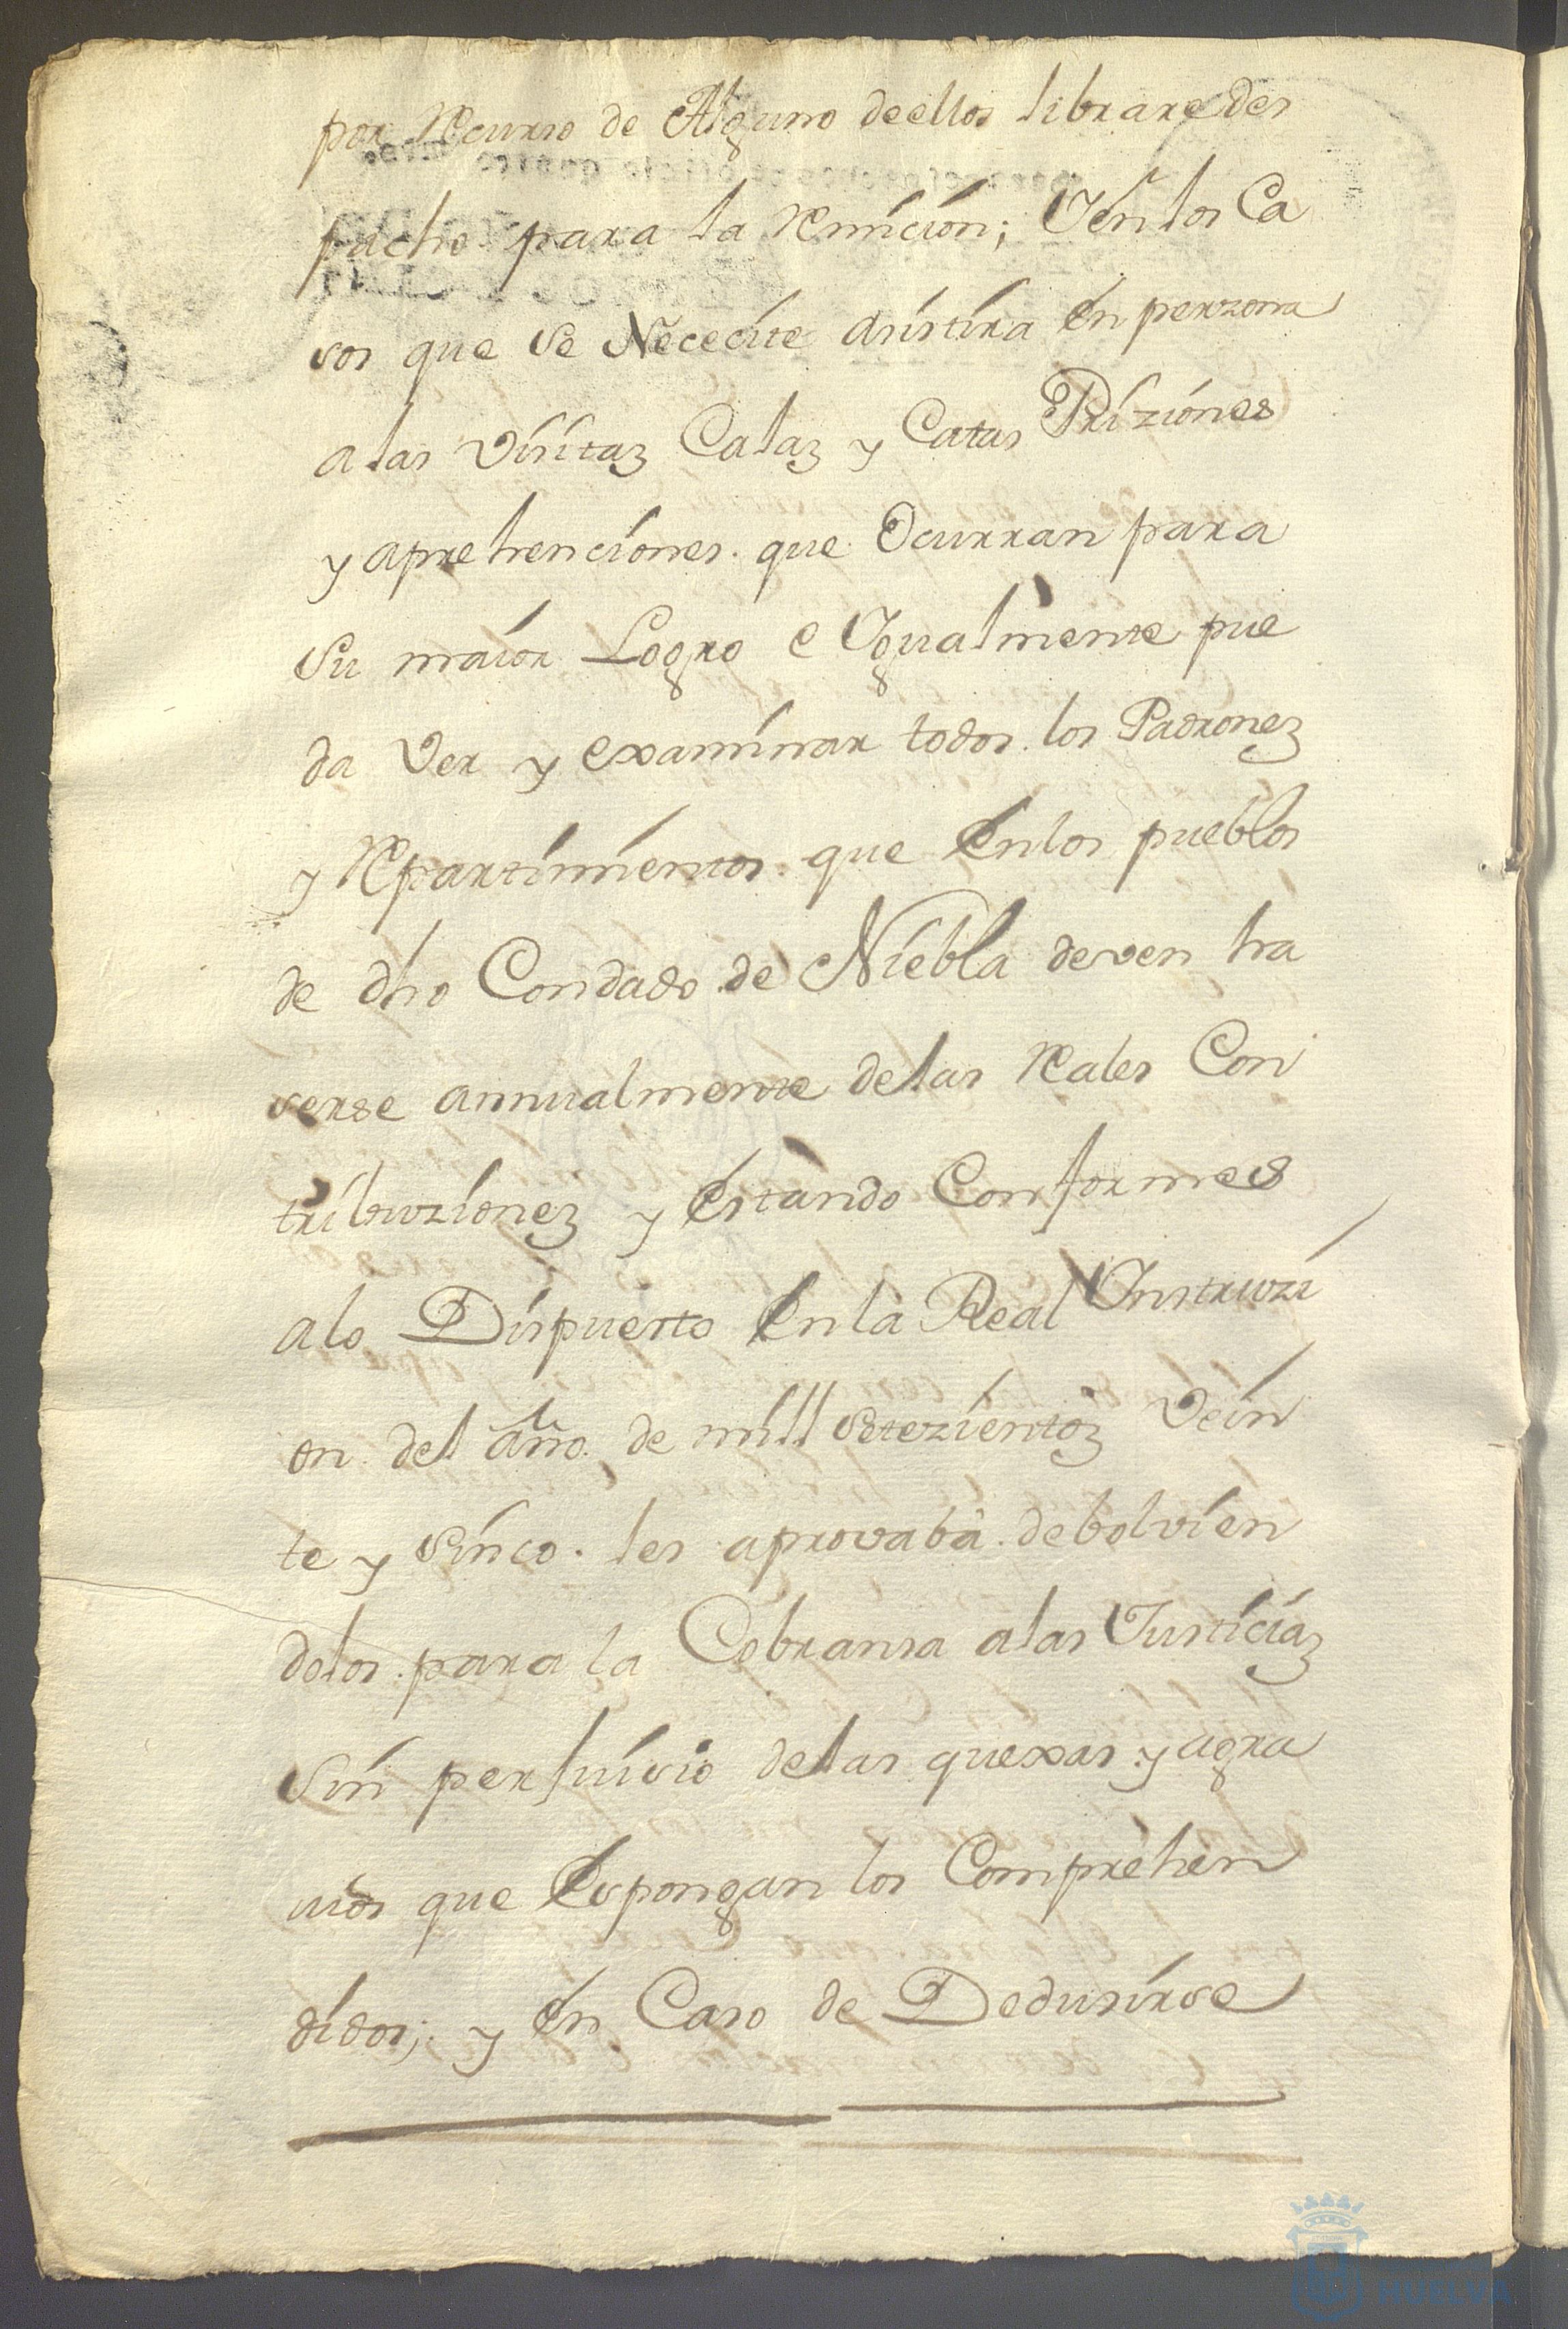 por Recurso de Alguno deellos librare des
pacho para la Remicion; Y en los Ca
sos que se Nececite asistira en perzona
a las Visitaz Calaz y Catas Priziones
y aprehenciones. que Ocurran para
su maior Logro e Ygualmente pue
da Ver y examinar todos. los Padronez
y Repartimientos. que en los pueblos
de dho Condado de Niebla deven ha
serse annualmente de las Reales Con
tribuzionez y estando Conformes
a lo Dispuesto en la Real Instruzi
on del año. de mill setezientoz Vein
te y sinco. les aprovaba. debolvien
dolos. para la Cobransa a las Justiciaz
sin perjuisio de las quexas. y agra
vios que espongan los Comprehen
didos; y en Caso de Dedusirse
HUELVA